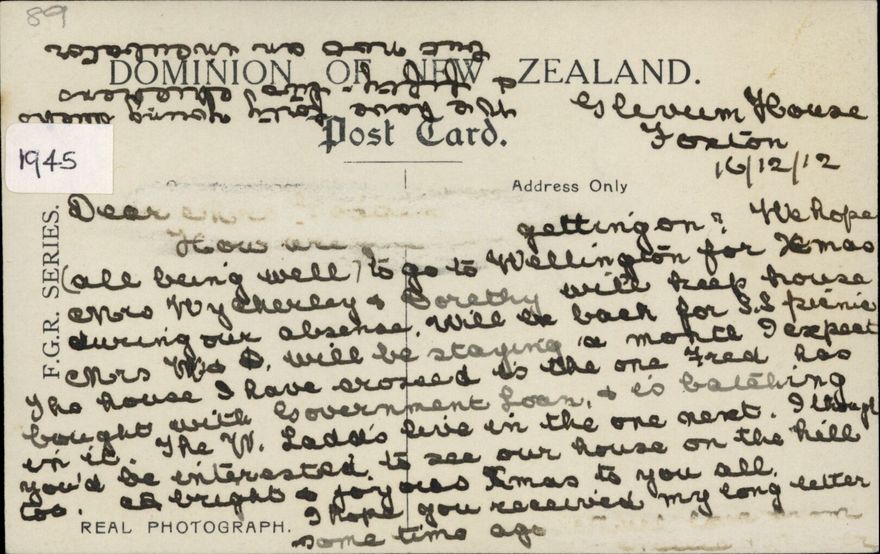 89
DOMINION OF NEW ZEALAND.
Post Card.
1945
Address Only
F.G.R. SERIES.
REAL PHOTOGRAPH.
Glevum House
Foxton
16/12/12
Dear
How are getting on? We hope
(all being well) to go to Wellington for Xmas
Mrs Wycherley & Dorethy will keep house
during our absense. Will be back for S.S picnic
Mrs W & D. will be staying a month I expect
The house I have crossed is the one Fred has
bought with Government Loan, & is batching
in it. The W. Ladds live in the one next. I though
you'd be interested to see our house on the hill
too. A bright & joyous Xmas to you all.
I hope you received my long letter
some time ago
We have forty young ones
& fifty two chickens
but not an incubator